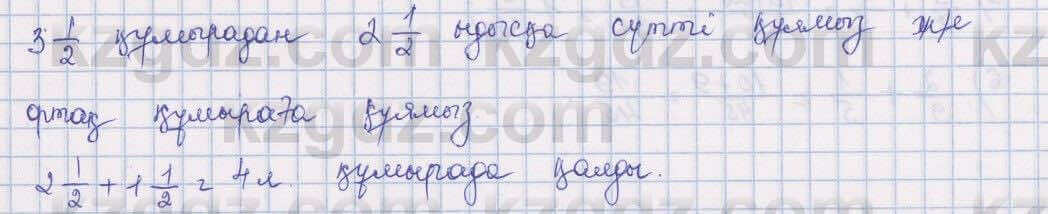 3 1/2 құмырадан 2 1/2 ыдысқа сүтті құямыз ж/е
ортақ құмыраға құямыз
2 1/2 + 1 1/2 = 4 л құмырада қалды.